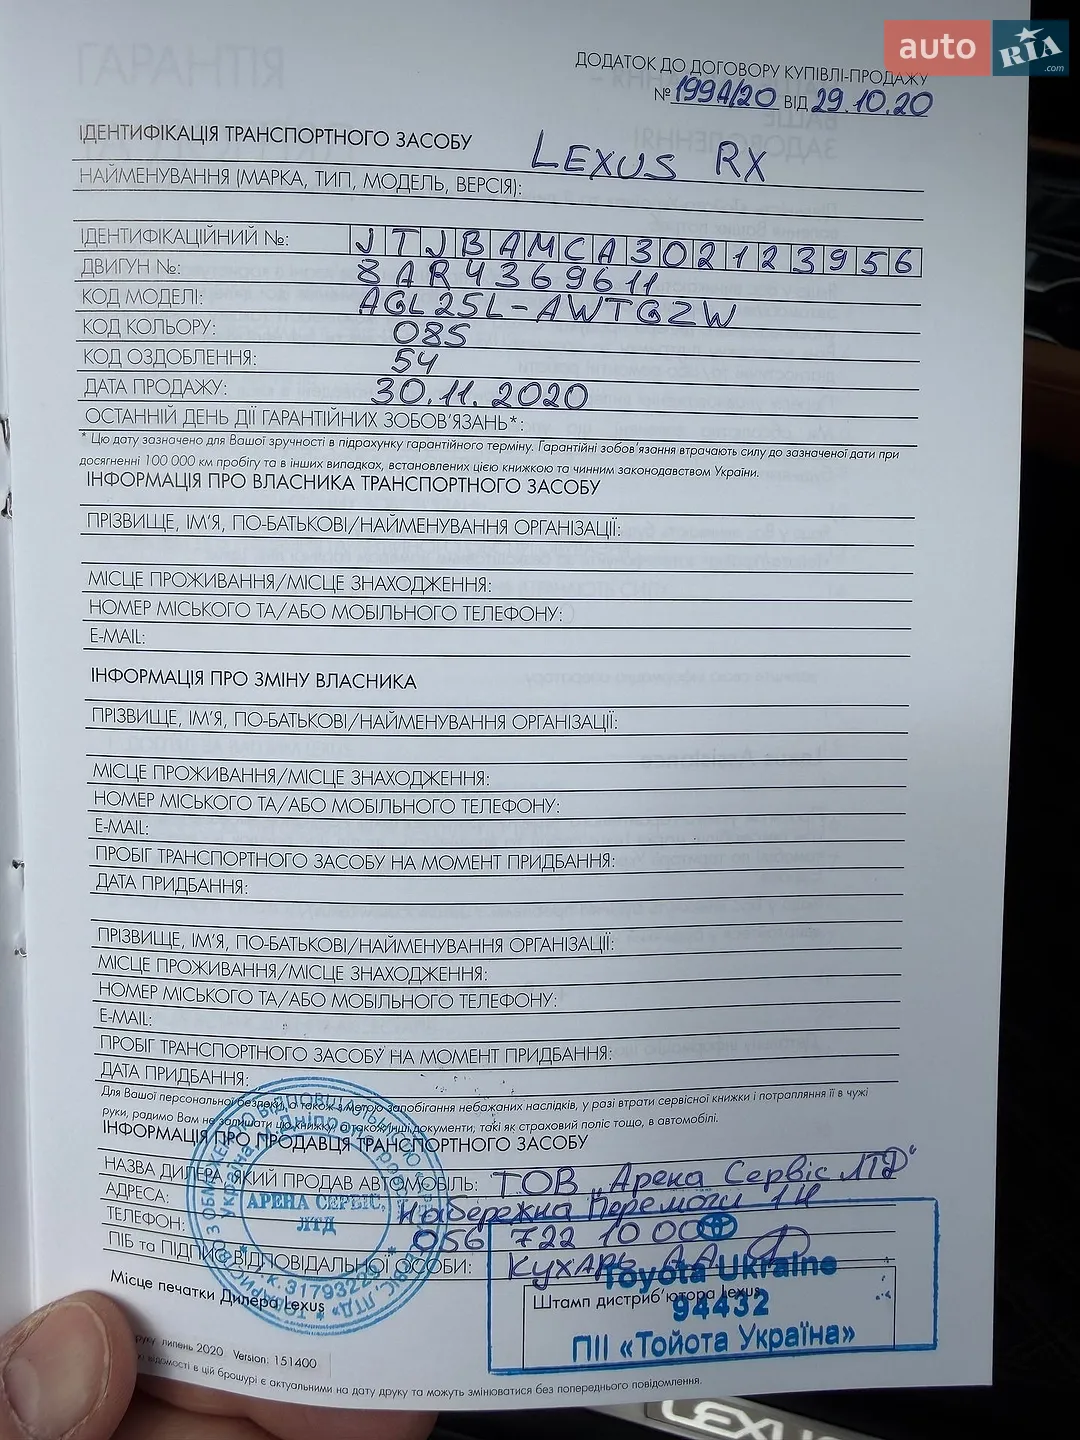 auto RIA .com
ДОДАТОК ДО ДОГОВОРУ КУПІВЛІ-ПРОДАЖУ
№ 1994/20 ВІД 29.10.20
ІДЕНТИФІКАЦІЯ ТРАНСПОРТНОГО ЗАСОБУ
LEXUS RX
НАЙМЕНУВАННЯ (МАРКА, ТИП, МОДЕЛЬ, ВЕРСІЯ):
ІДЕНТИФІКАЦІЙНИЙ №: JTJBAMCA302123956
ДВИГУН №: 8AR4369611
КОД МОДЕЛІ: AGL25L-AWTGZW
КОД КОЛЬОРУ: 085
КОД ОЗДОБЛЕННЯ: 54
ДАТА ПРОДАЖУ: 30.11.2020
ОСТАННІЙ ДЕНЬ ДІЇ ГАРАНТІЙНИХ ЗОБОВ'ЯЗАНЬ*:
* Цю дату зазначено для Вашої зручності в підрахунку гарантійного терміну. Гарантійні зобов'язання втрачають силу до зазначеної дати при
досягненні 100 000 км пробігу та в інших випадках, встановлених цією книжкою та чинним законодавством України.
ІНФОРМАЦІЯ ПРО ВЛАСНИКА ТРАНСПОРТНОГО ЗАСОБУ
ПРІЗВИЩЕ, ІМ'Я, ПО-БАТЬКОВІ/НАЙМЕНУВАННЯ ОРГАНІЗАЦІЇ:
МІСЦЕ ПРОЖИВАННЯ/МІСЦЕ ЗНАХОДЖЕННЯ:
НОМЕР МІСЬКОГО ТА/АБО МОБІЛЬНОГО ТЕЛЕФОНУ:
E-MAIL:
ІНФОРМАЦІЯ ПРО ЗМІНУ ВЛАСНИКА
ПРІЗВИЩЕ, ІМ'Я, ПО-БАТЬКОВІ/НАЙМЕНУВАННЯ ОРГАНІЗАЦІЇ:
МІСЦЕ ПРОЖИВАННЯ/МІСЦЕ ЗНАХОДЖЕННЯ:
НОМЕР МІСЬКОГО ТА/АБО МОБІЛЬНОГО ТЕЛЕФОНУ:
E-MAIL:
ПРОБІГ ТРАНСПОРТНОГО ЗАСОБУ НА МОМЕНТ ПРИДБАННЯ:
ДАТА ПРИДБАННЯ:
ПРІЗВИЩЕ, ІМ'Я, ПО-БАТЬКОВІ/НАЙМЕНУВАННЯ ОРГАНІЗАЦІЇ:
МІСЦЕ ПРОЖИВАННЯ/МІСЦЕ ЗНАХОДЖЕННЯ:
НОМЕР МІСЬКОГО ТА/АБО МОБІЛЬНОГО ТЕЛЕФОНУ:
E-MAIL:
ПРОБІГ ТРАНСПОРТНОГО ЗАСОБУ НА МОМЕНТ ПРИДБАННЯ:
ДАТА ПРИДБАННЯ:
Для Вашої персональної безпеки, а також з метою запобігання небажаних наслідків, у разі втрати сервісної книжки і потрапляння її в чужі
руки, радимо Вам не залишати цю книжку, а також інші документи, такі як страховий поліс тощо, в автомобілі.
ІНФОРМАЦІЯ ПРО ПРОДАВЦЯ ТРАНСПОРТНОГО ЗАСОБУ
НАЗВА ДИЛЕРА, ЯКИЙ ПРОДАВ АВТОМОБІЛЬ: ТОВ „Арена Сервіс ЛТД"
АДРЕСА: Набережна Перемоги 14
ТЕЛЕФОН: 056 722 10 00
ПІБ та ПІДПИС ВІДПОВІДАЛЬНОЇ ОСОБИ: Кухарь А.А.
АРЕНА СЕРВІС,
ЛТД
Toyota Ukraine
Місце печатки Дилера Lexus
Штамп дистриб'ютора Lexus
94432
ПІІ «Тойота Україна»
липень 2020 Version: 151400
відомості в цій брошурі є актуальними на дату друку та можуть змінюватися без попереднього повідомлення.
LEXUS